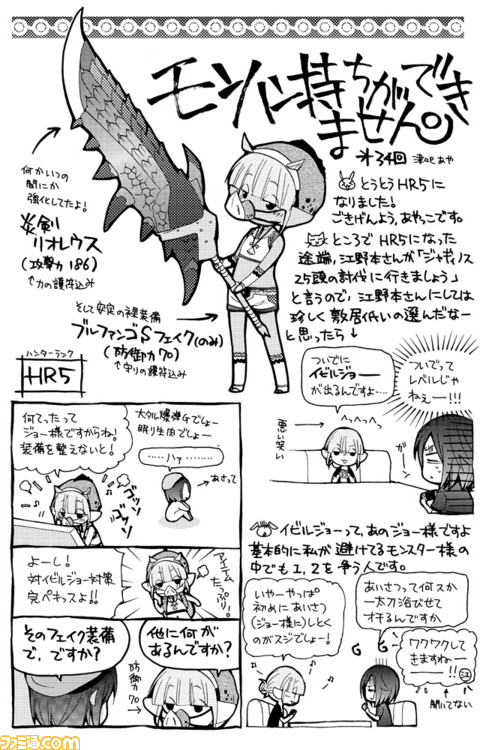 モンハン持ちができ
ません。
オ34回
津っと あや
とうとうHR5に
なりました!
ごきげんよう、あやっこです。
ところでHR5になった
途端、江野本さんが「ジャギィノス
25頭の討伐に行きましょう」
と言うので、江野本さんにしては
珍しく敷居低いの選んだなー
と思ったら↓
何かいつの
間にか
強化してたよ!
炎剣
リオレウス
(攻撃力186)
↑力の護符込み
そして安定の裸装備
ブルファンゴSフェイク(のみ)
(防御力70)
↑守りの護符込み
ハンターランク
HR5
ついでに
イビルジョー
が出るんですよ…
ついでって
レベルじゃ
ねぇー!!!
悪い笑い
が
イビルジョーって、あのジョー様ですよ
基本的に私が避けてるモンスター様の
中でも1、2を争う人です。
いやーやっぱ
初めにあいさつ
(ジョー様に)しとく
のがスジでしょー!
あいさつって何スか
一太刀浴びせて
オチるんですか
ワクワクして
きますねー
ー!!
↑聞いてない
何てったって
ジョー様ですからね!
装備を整えないと!
大タル爆弾Gでしょー
眠り生肉でしょー
……ハァ……
あさって
ゴソッ
ゴソッ
よーし!
対イビルジョー対策
完ペキっスよ!!
アイテム
たっぷり!
そのフェイク装備
で、ですか?
他に何が
あるんですか?
防御力
70
ファミ通.com